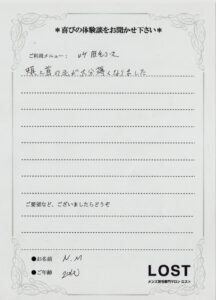 ＊喜びの体験談をお聞かせ下さい＊
ご利用メニュー： 脱毛コース
頬と首の毛が大分薄くなりました
ご要望など、ございましたらどうぞ
●お名前 N.M
●ご年齢 20代
LOST
メンズ脱毛専門サロン ロスト